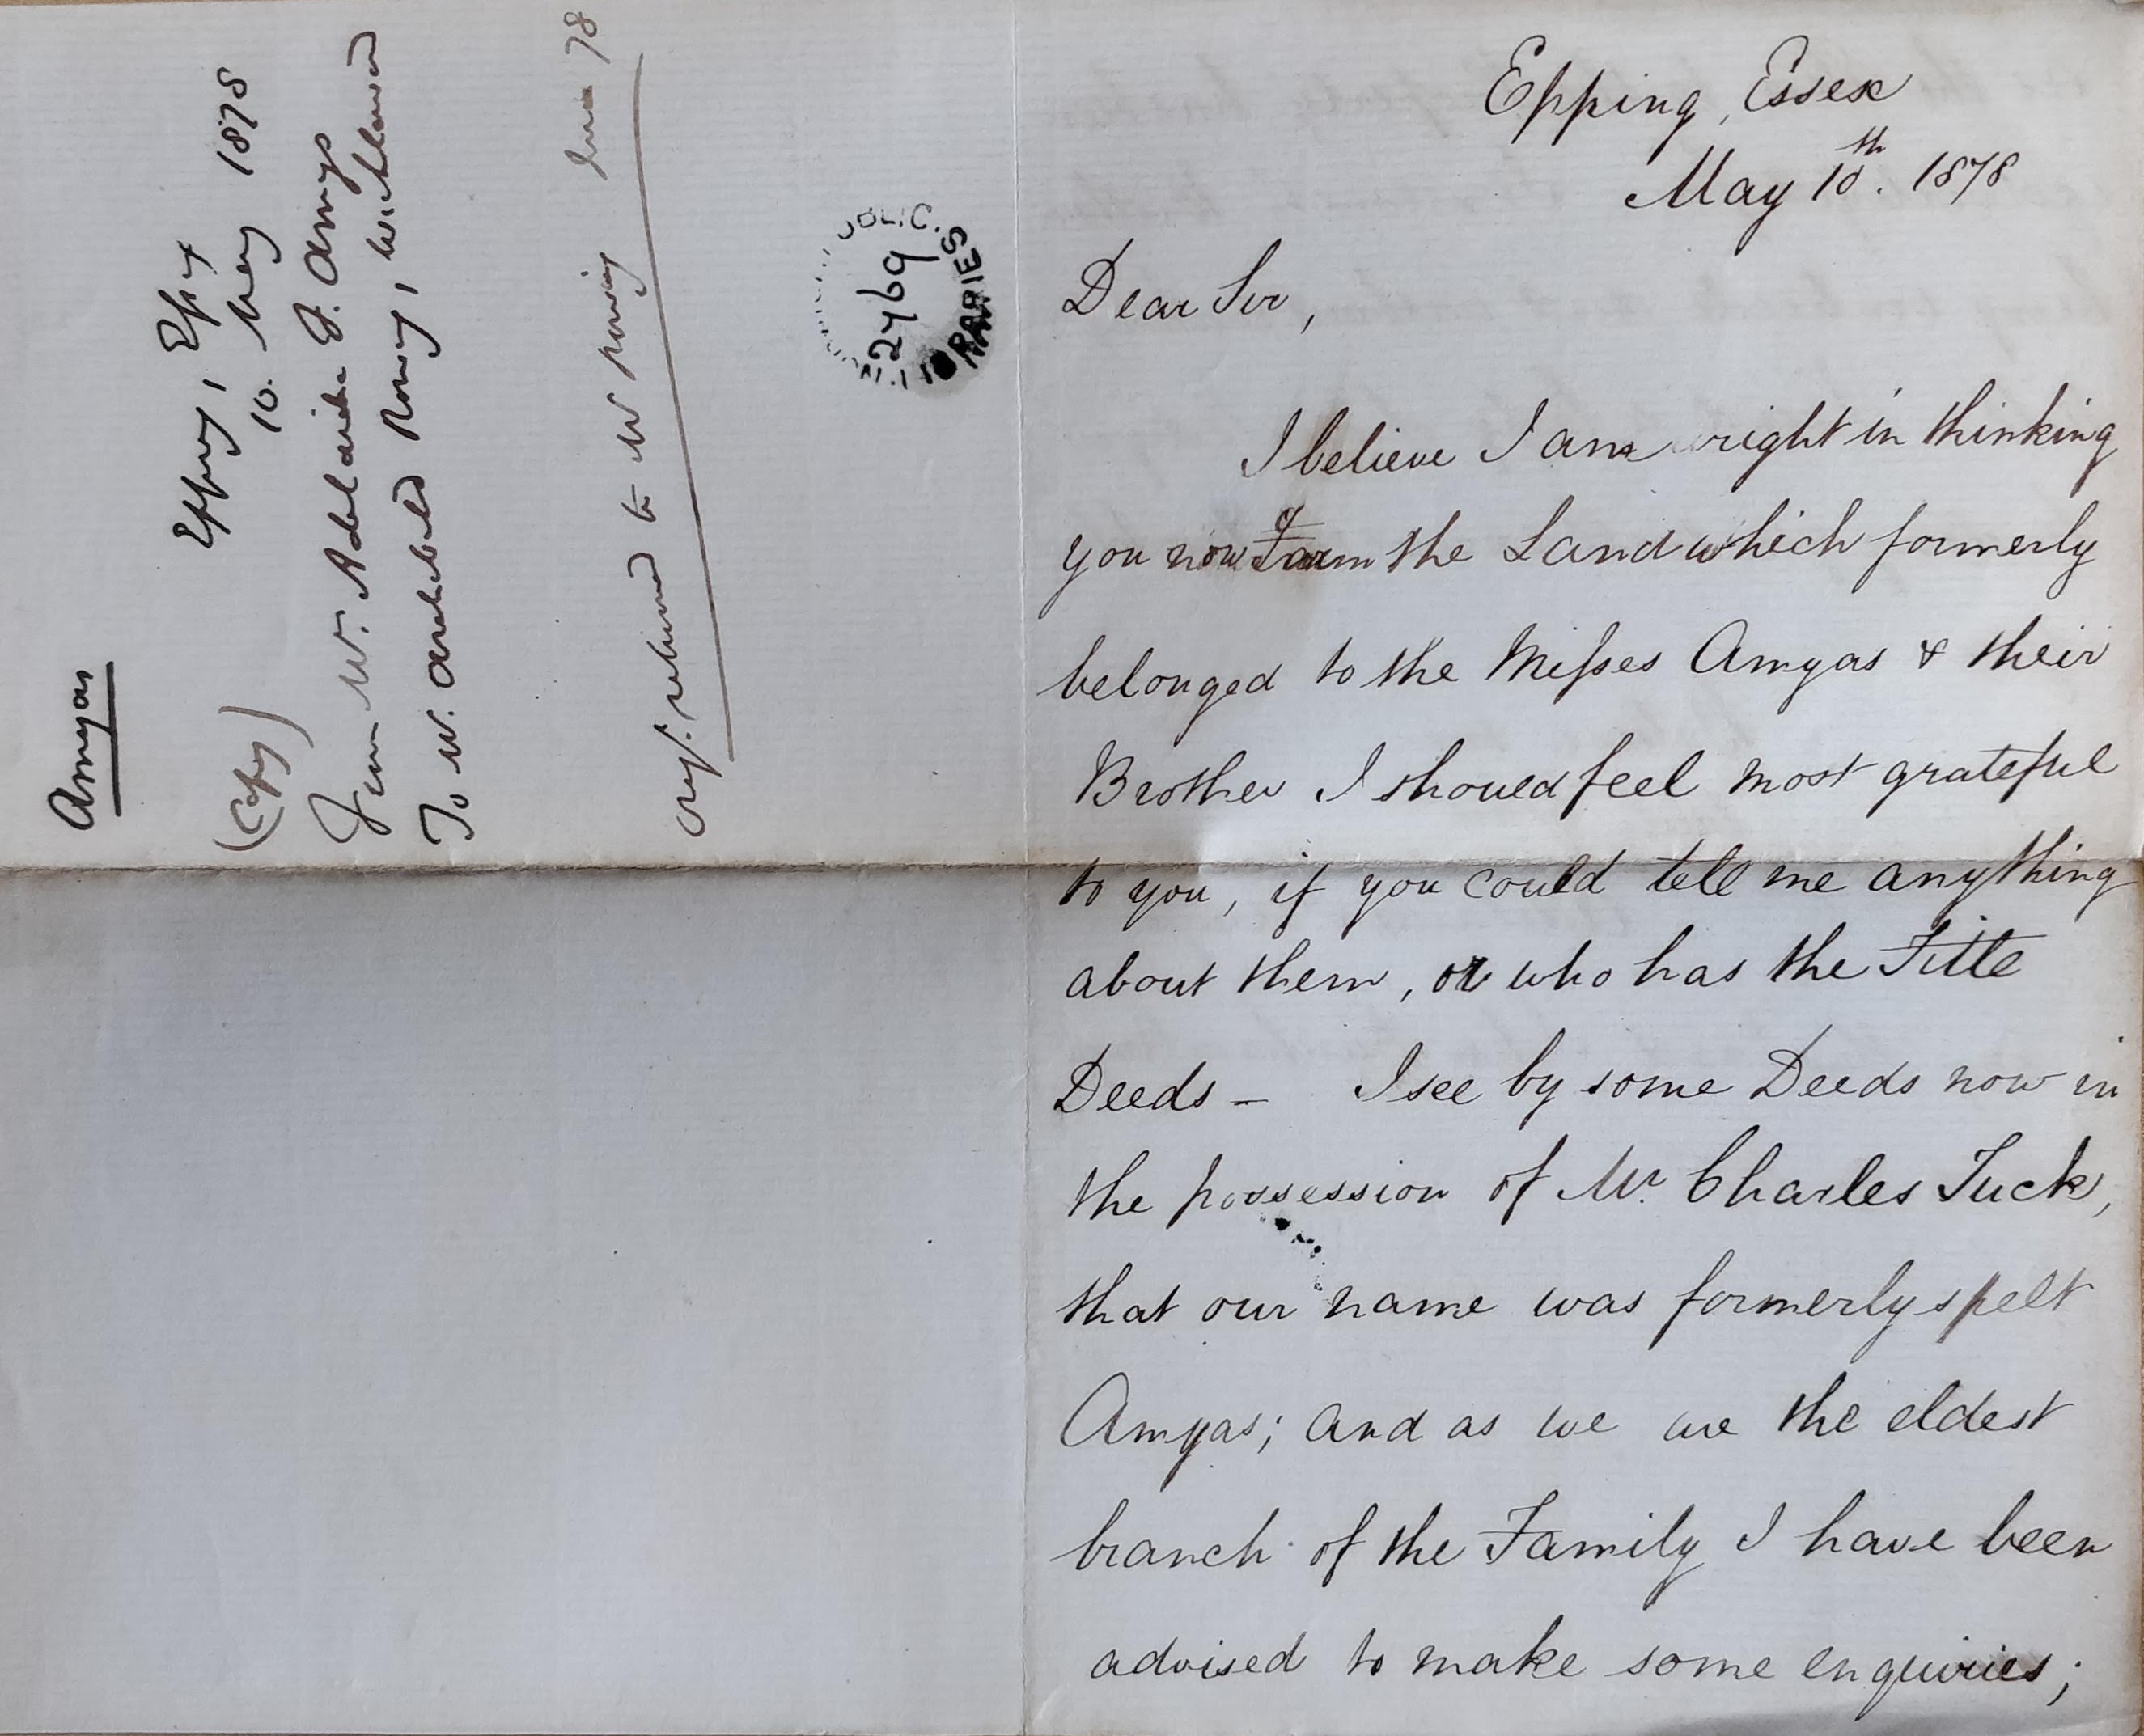 Amyas
(Copy)
Epping, Essex
10. May 1878
From Mr. Adelaide G. Amys
To Mr. Archibald Romney, Wicklewood
Orig. returned to Mr Romney June 78
PUBLIC
2769
LIBRARIES
Epping, Essex
May 10th. 1878
Dear Sir,
I believe I am right in thinking
you now Farm the Land which formerly
belonged to the Misses Amyas & their
Brother I should feel most grateful
to you, if you could tell me anything
about them, or who has the Title
Deeds – I see by some Deeds now in
the possession of Mr. Charles Tuck,
that our name was formerly spelt
Amyas; and as we are the eldest
branch of the Family I have been
advised to make some enquiries;